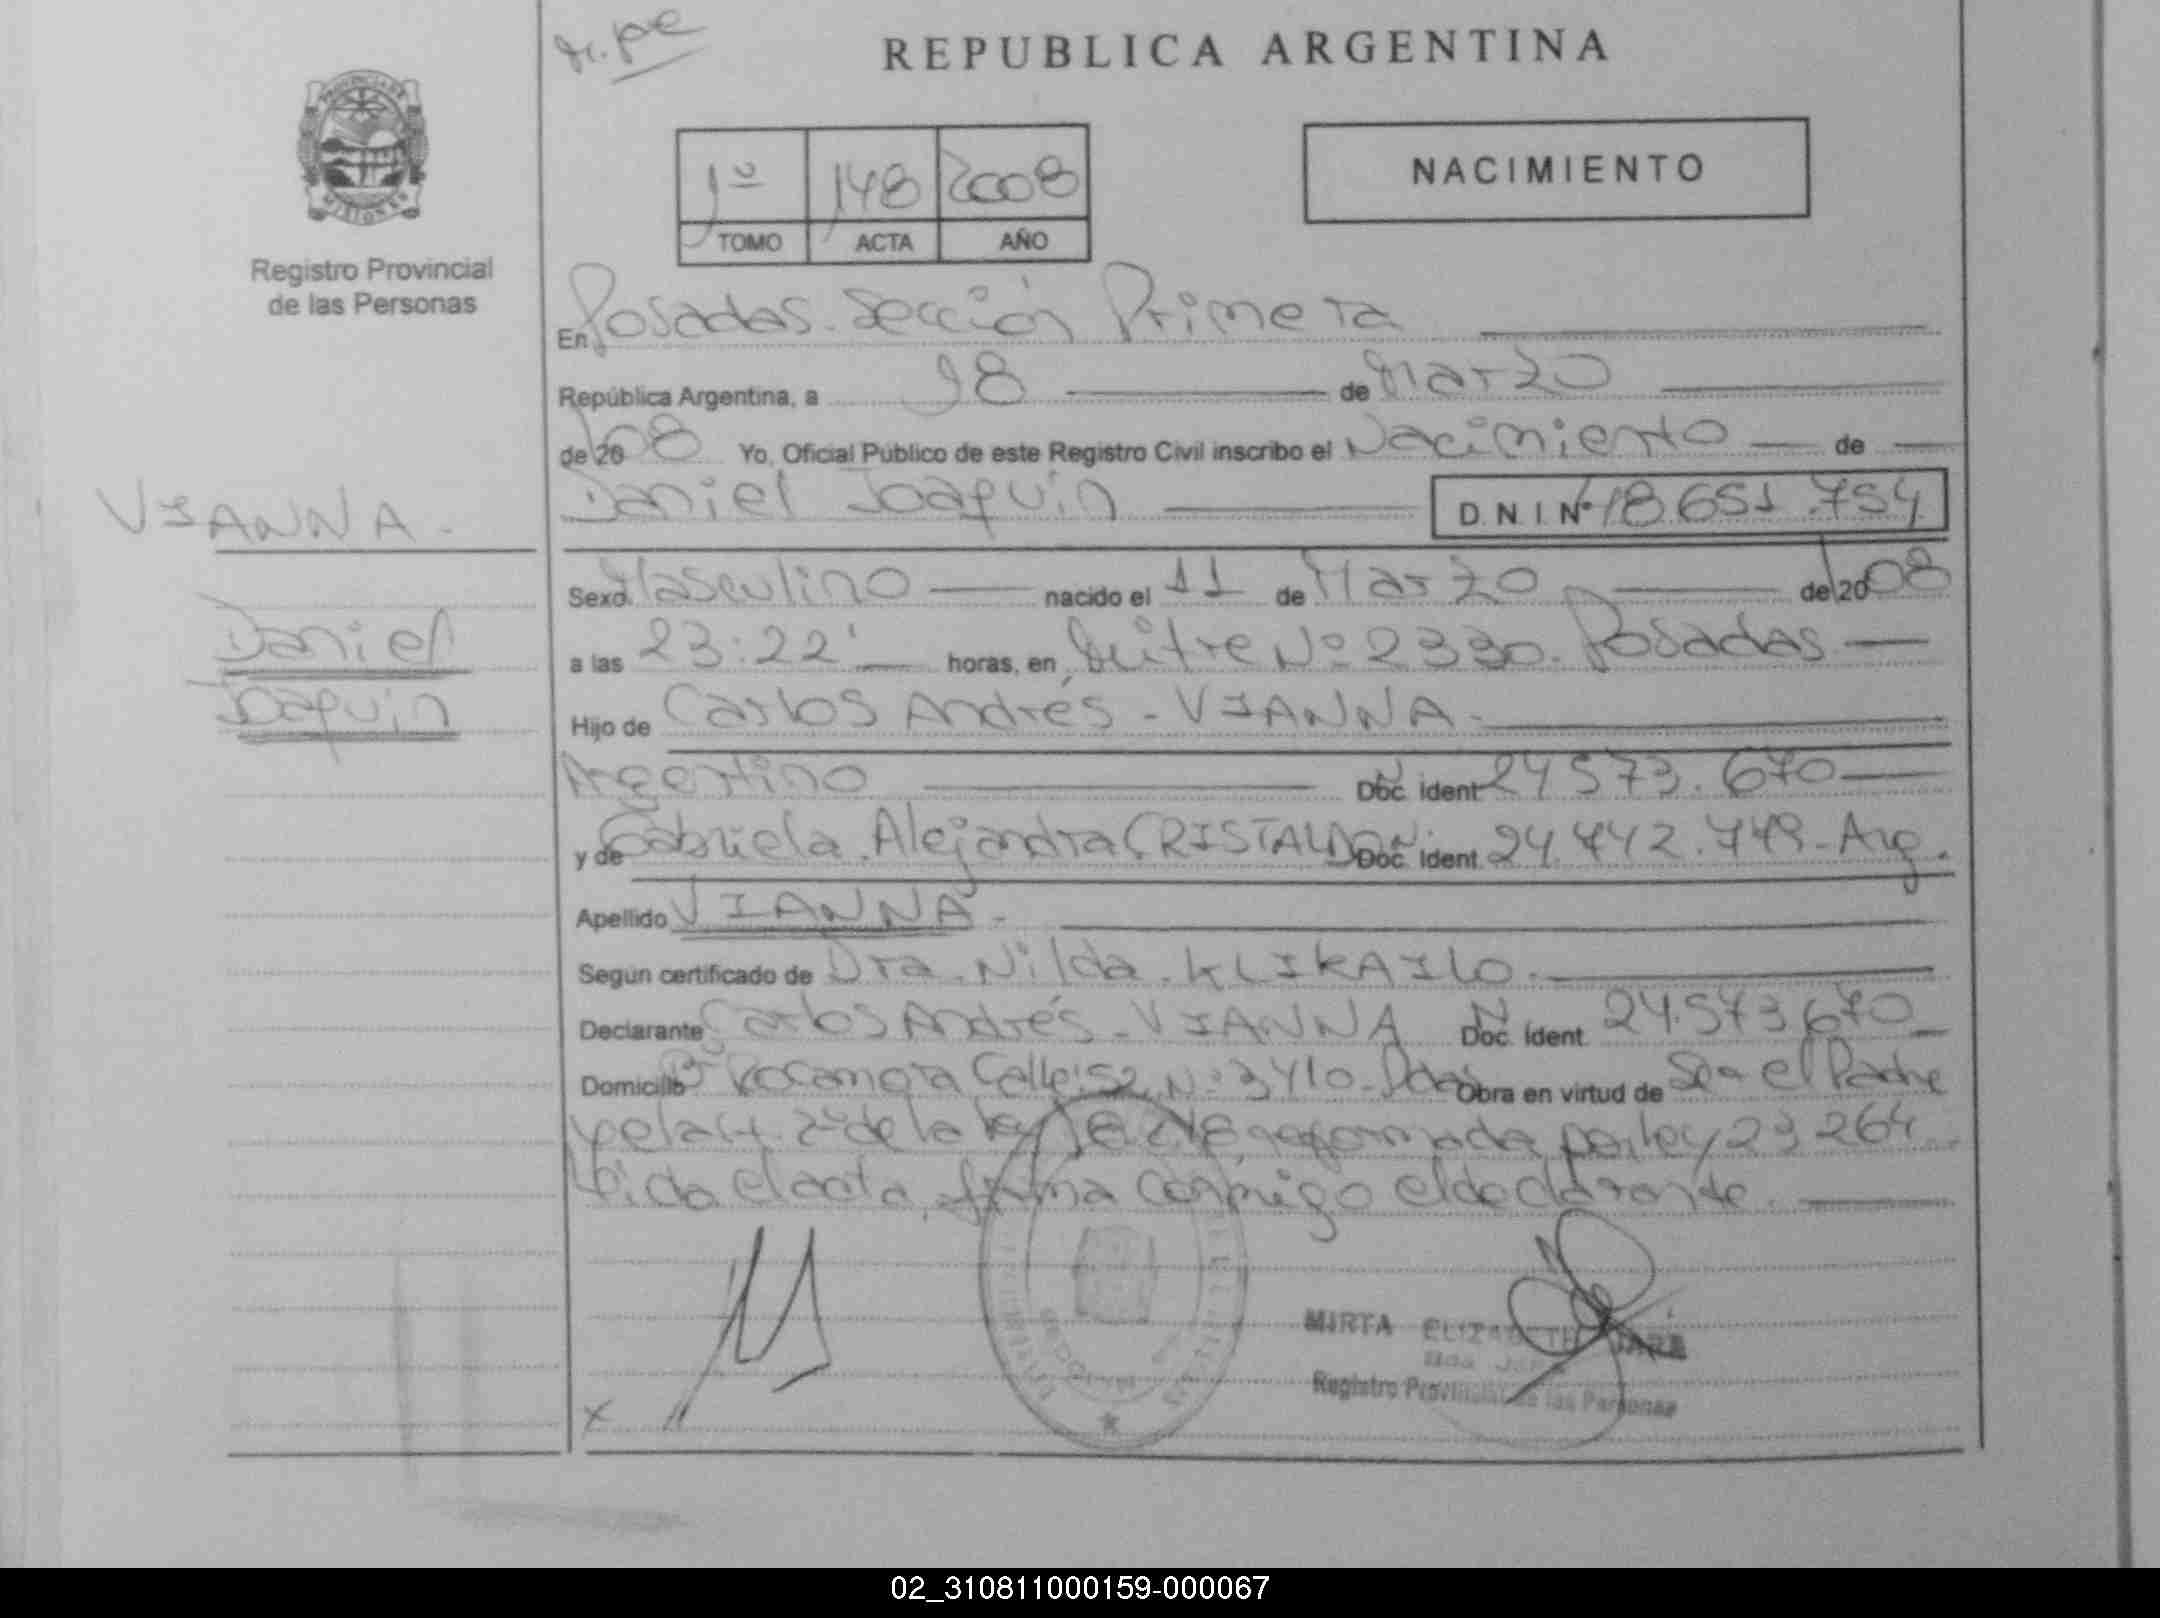 REPUBLICA ARGENTINA
PROVINCIA DE
MISIONES
Registro Provincial
de las Personas
1º 148 2008
TOMO ACTA AÑO
NACIMIENTO
En Posadas. Sección Primera
República Argentina, a 18 de Marzo
de 2008 Yo, Oficial Público de este Registro Civil inscribo el Nacimiento de
Daniel Joaquín D.N.I. Nº 48.651.754
VIANNA.
Daniel
Joaquín
Sexo Masculino nacido el 11 de Marzo de 2008
a las 23:22' horas, en Mitre Nº 2330. Posadas
Hijo de Carlos Andrés - VIANNA.
Argentino Doc. Ident. 24.573.670
y de Gabriela Alejandra CRISTALDO Doc. Ident. 24.442.749 - Arg.
Apellido VIANNA.
Según certificado de Dra. Nilda. KLIKAILO.
Declarante Carlos Andrés - VIANNA Doc. Ident. 24.573.670
Domicilio Bº Rocamora Calle 52 Nº 3410 - Pdas Obra en virtud de Ser el Padre
y el art. 2º de la ley reformada por ley 23.264
Leída el acta, firma conmigo el declarante.
X
MIRTA ELIZABETH JARA
Registro Provincial de las Personas
02_310811000159-000067